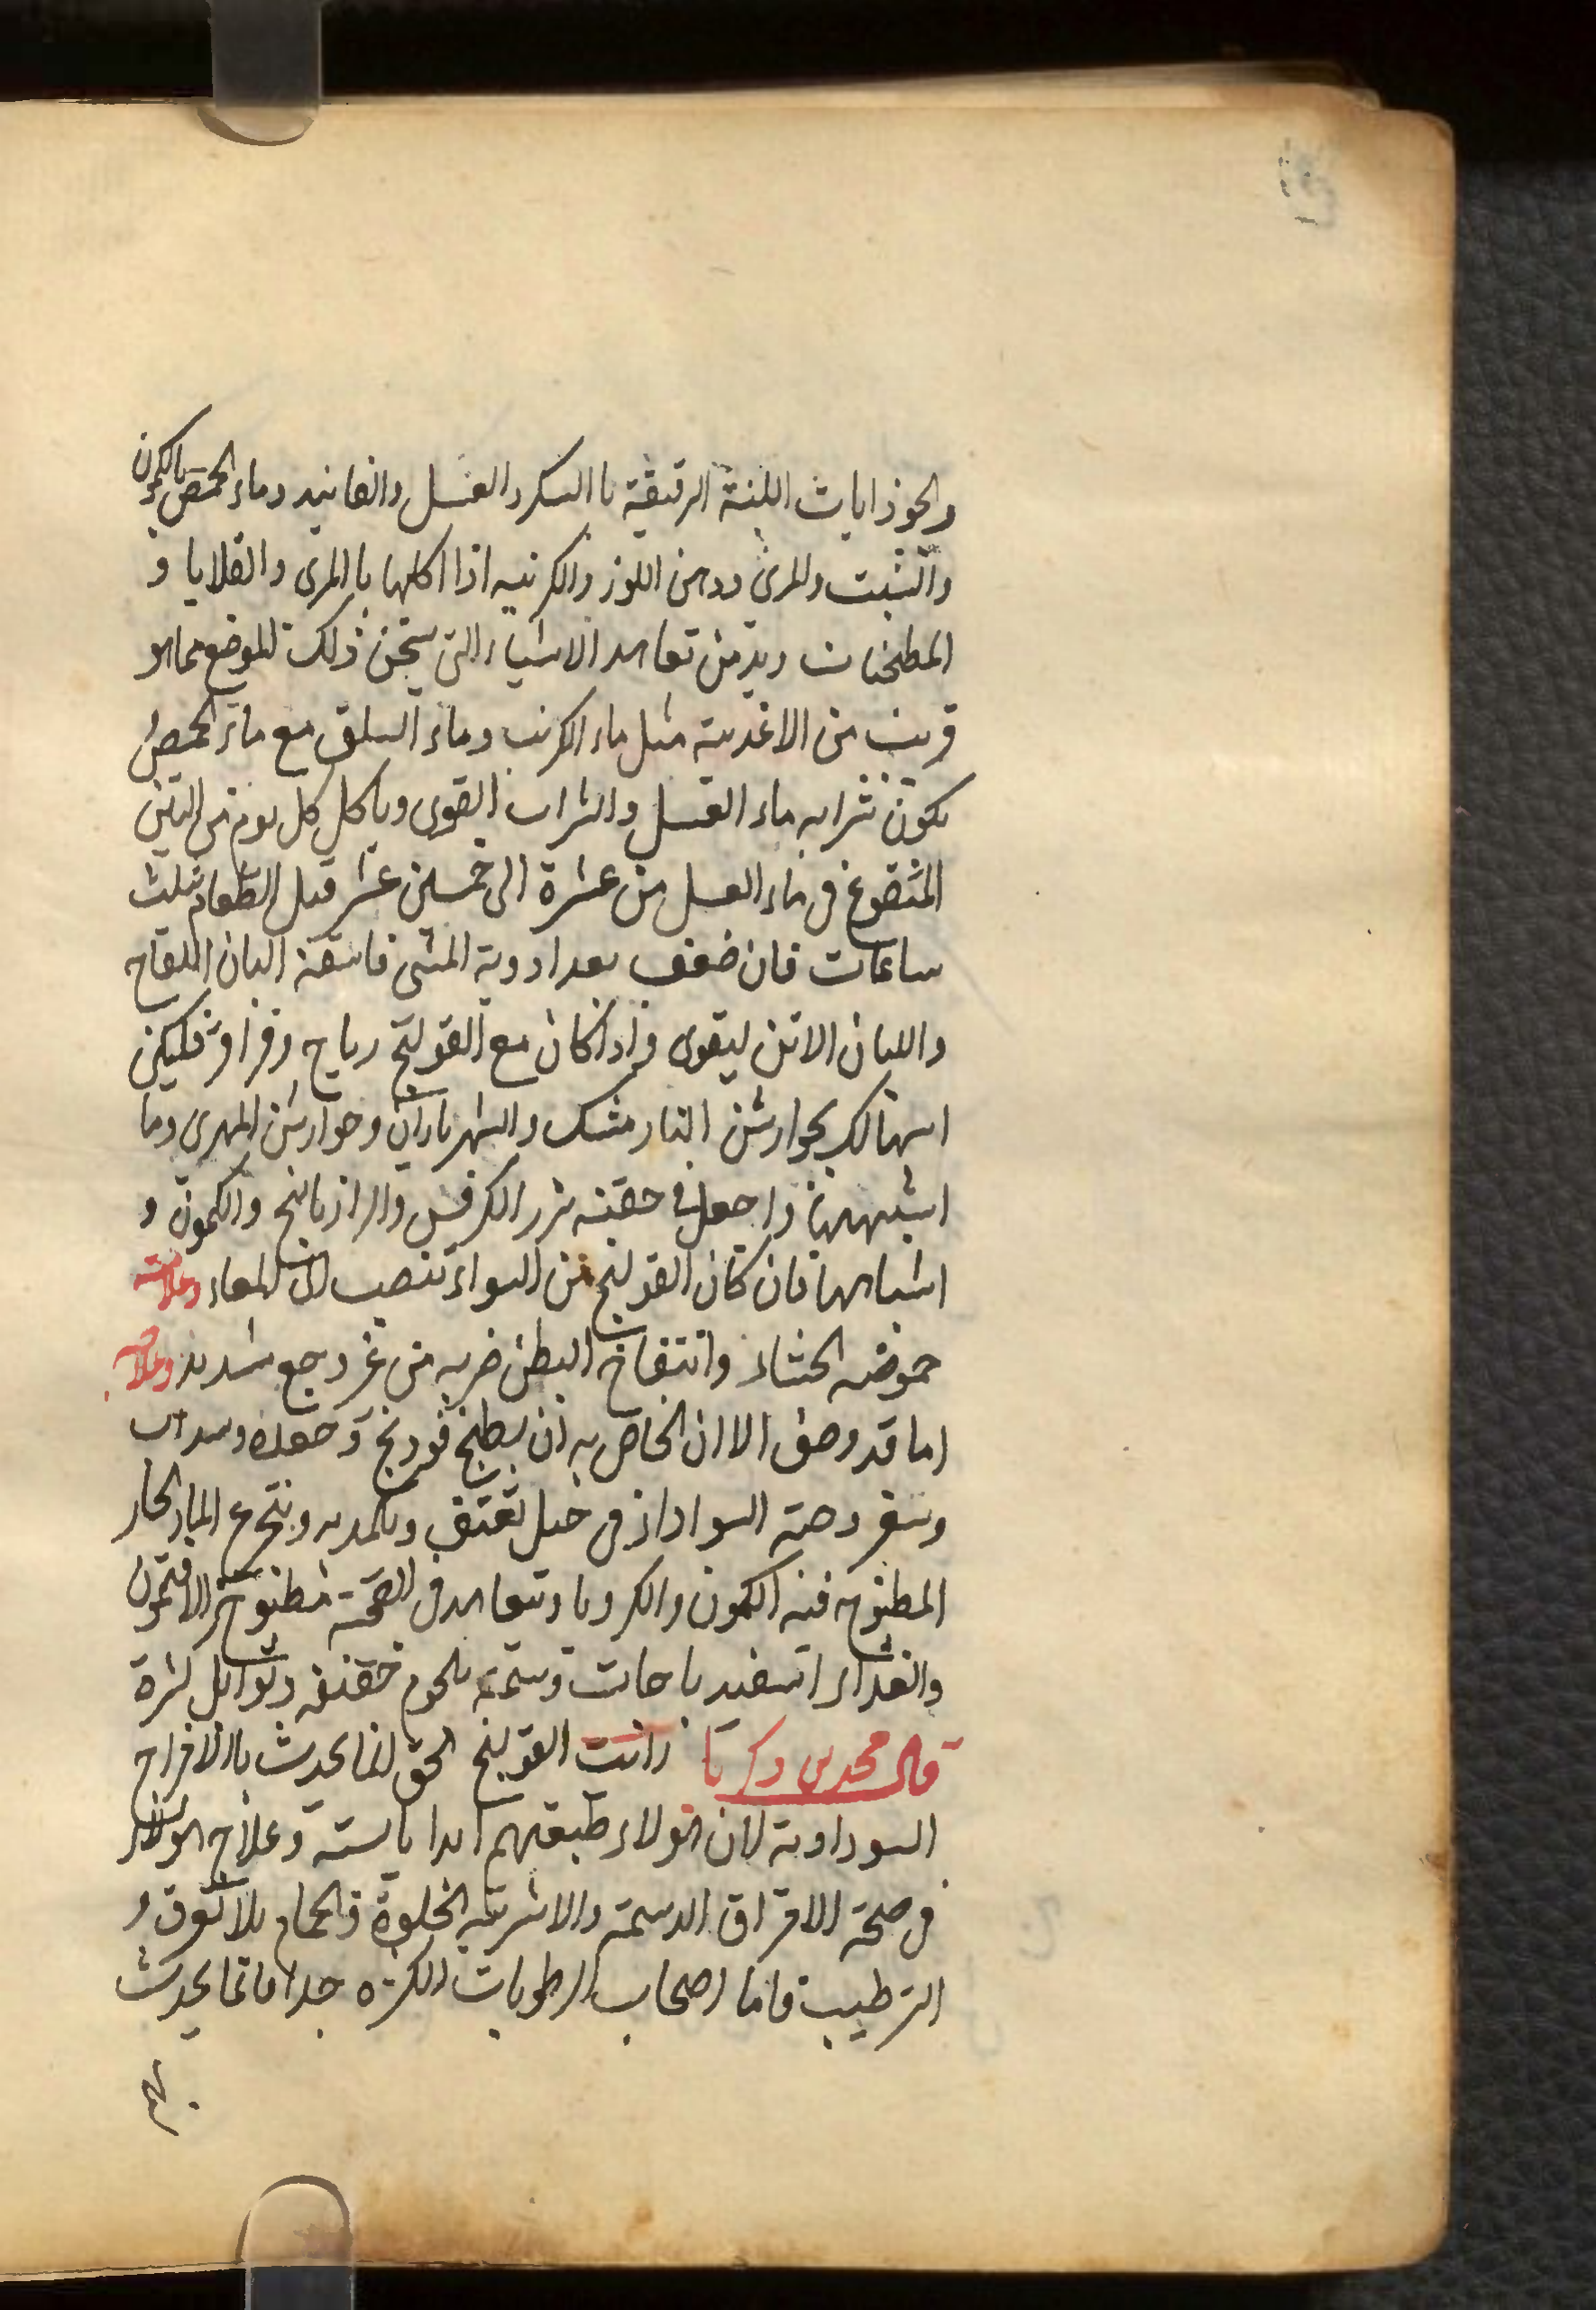 والجوذابات اللينة الرقيقة باالسكر والعسل والفانيد وماء الحمص بالكمون
والشبت والمرى ودهن اللوز والكرنبيه اذا اكلها باالمرى والقلايا و
المطجنات وبد من تعاهد الاشياء التى تسخن ذلك الموضع مما هو
قريب من الاغدية مثل ماء الكرنب وماء السلق مع ماء الحمص و
يكون شرابه ماء العسل والشراب القوى وياكل كل يوم من التين
المنقوع فى ماء العسل من عشرة الى خمسين عشر قبل الطعام بثلث
ساعات فان ضعف بعد ادوية المشى فاسقه البان اللقاح
واللبان الاتن ليقوى واذا كان مع القولنج رياح وقراقر فليكن
اسهالك بجوارشن النارمشك والشهرياران وجوارشن المهدى وما
اشبههما واجعل فى حقنه بزر الكرفس والرازيانج والكمون و
اشباهها فان كان القولنج من السواء تنصب الى المعاء وعلامته
حموضه الجشاء وانتفاخ البطن ضربه من غير وجع شديد وعلاجه
اما قد وصف الا ان الخاص به ان يطبخ فودنج وجعده وسداب
وحبة السوادا فى خل ثقيف ويكمد به ويتجرع الماء الحار
المطبوخ فيه الكمون والكرويا ويتعاهد فى الصحة مطبوخ الافتيمون
والغداء اسفيدباجات دسمة بلحوم خفيفه وتوابل كثيرة
قال محمد بن زكريا رايت القولنج الحق انما يحدث باالافراح
السوداوية لان هولاء طبيعتهم ابدا يابسته وعلاج هولاء
فى صحة الامراق الدسمة والاشربه الحلوة والحمام بلا تعرق و
الترطيب فاما اصحاب الرطوبات الكثيره جدا فانما يحدث
بهم